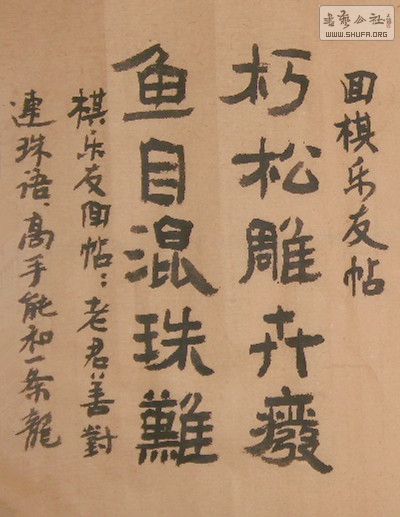 書藝公社
WWW.SHUFA.ORG
回棋乐友帖
朽松雕卉癈
鱼目混珠難
棋乐友回帖：老君善對
連珠语、高手能和一条龍